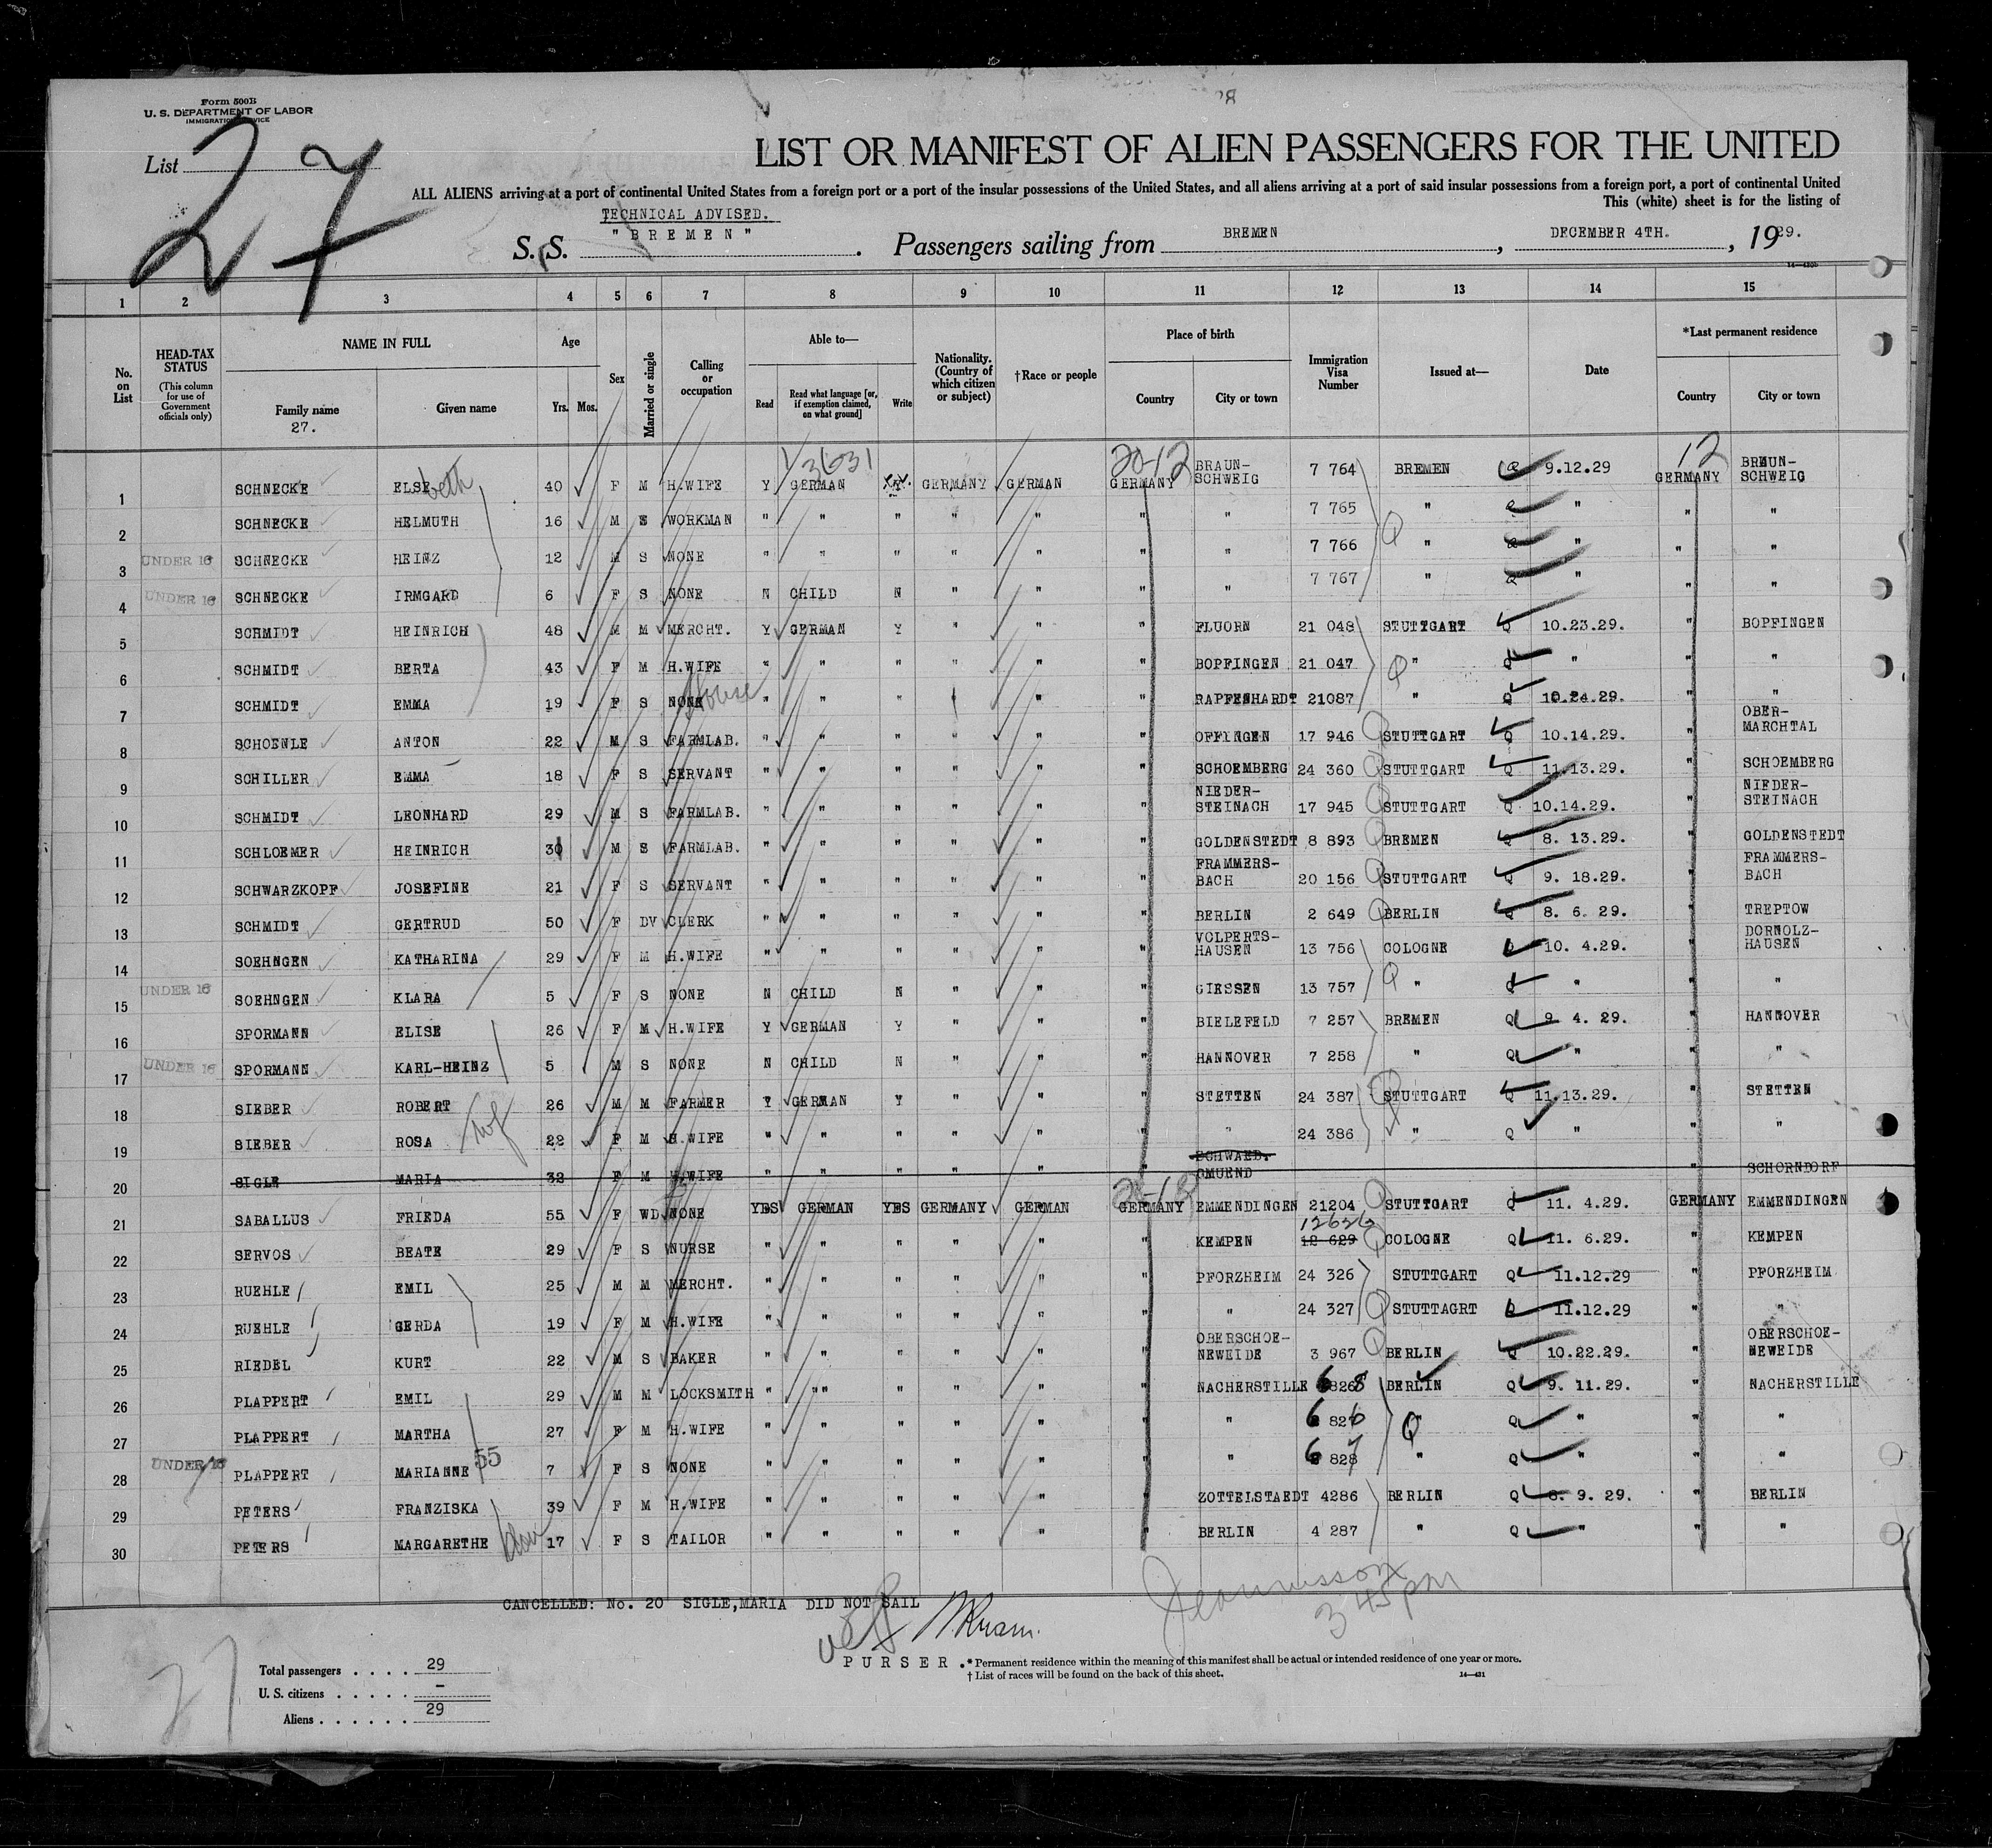 Form 500B
U. S. DEPARTMENT OF LABOR
IMMIGRATION SERVICE
List 27
LIST OR MANIFEST OF ALIEN PASSENGERS FOR THE UNITED
ALL ALIENS arriving at a port of continental United States from a foreign port or a port of the insular possessions of the United States, and all aliens arriving at a port of said insular possessions from a foreign port, a port of continental United
This (white) sheet is for the listing of
TECHNICAL ADVISED.
S. S. "BREMEN". Passengers sailing from BREMEN, DECEMBER 4TH., 1929.
1 2 3 4 5 6 7 8 9 10 11 12 13 14 15
No. on List
HEAD-TAX STATUS (This column for use of Government officials only)
NAME IN FULL Family name Given name
27.
Age Yrs. Mos.
Sex
Married or single
Calling or occupation
Able to— Read Read what language [or, if exemption claimed, on what ground] Write
Nationality. (Country of which citizen or subject)
†Race or people
Place of birth Country City or town
Immigration Visa Number
Issued at—
Date
*Last permanent residence Country City or town
1 3631 20-12 12
1 SCHNECKE ELSEbeth 40 F M H.WIFE Y GERMAN Y GERMANY GERMAN GERMANY BRAUN-SCHWEIG 7 764 BREMEN Q 9.12.29 GERMANY BRAUN-SCHWEIG
2 SCHNECKE HELMUTH 16 M S WORKMAN " " " " " " " 7 765 " Q " " "
3 UNDER 16 SCHNECKE HEINZ 12 M S NONE " " " " " " " 7 766 " Q " " "
4 UNDER 16 SCHNECKE IRMGARD 6 F S NONE N CHILD N " " " " 7 767 " Q " " "
5 SCHMIDT HEINRICH 48 M M MERCHT. Y GERMAN Y " " " FLUORN 21 048 STUTTGART Q 10.23.29. " BOPFINGEN
6 SCHMIDT BERTA 43 F M H.WIFE " " " " " " BOPFINGEN 21 047 " Q " " "
7 SCHMIDT EMMA 19 F S NONE House " " " " " RAPPENHARDT 21087 " Q 10.24.29. " "
8 SCHOENLE ANTON 22 M S FARMLAB. " " " " " " OFFINGEN 17 946 STUTTGART Q 10.14.29. " OBER-MARCHTAL
9 SCHILLER EMMA 18 F S SERVANT " " " " " " SCHOEMBERG 24 360 STUTTGART Q 11.13.29. " SCHOEMBERG
10 SCHMIDT LEONHARD 29 M S FARMLAB. " " " " " " NIEDER-STEINACH 17 945 STUTTGART Q 10.14.29. " NIEDER-STEINACH
11 SCHLOEMER HEINRICH 30 M S FARMLAB. " " " " " " GOLDENSTEDT 8 893 BREMEN Q 8. 13.29. " GOLDENSTEDT
12 SCHWARZKOPF JOSEFINE 21 F S SERVANT " " " " " " FRAMMERS-BACH 20 156 STUTTGART Q 9. 18.29. " FRAMMERS-BACH
13 SCHMIDT GERTRUD 50 F DV CLERK " " " " " " BERLIN 2 649 BERLIN Q 8. 6. 29. " TREPTOW
14 SOEHNGEN KATHARINA 29 F M H.WIFE " " " " " " VOLPERTS-HAUSEN 13 756 COLOGNE Q 10. 4.29. " DORNOLZ-HAUSEN
15 UNDER 16 SOEHNGEN KLARA 5 F S NONE N CHILD N " " " GIESSEN 13 757 " Q " " "
16 SPORMANN ELISE 26 F M H.WIFE Y GERMAN Y " " " BIELEFELD 7 257 BREMEN Q 9. 4. 29. " HANNOVER
17 UNDER 16 SPORMANN KARL-HEINZ 5 M S NONE N CHILD N " " " HANNOVER 7 258 " Q " " "
18 SIEBER ROBERT 26 M M FARMER Y GERMAN Y " " " STETTEN 24 387 STUTTGART Q 11.13.29. " STETTEN
19 SIEBER ROSA wf 22 F M H.WIFE " " " " " " " 24 386 " Q " " "
20 SIGLE MARIA 32 F M H.WIFE " " " " " " SCHWAEB. GMUEND " SCHORNDORF
21 SABALLUS FRIEDA 55 F WD NONE YES GERMAN YES GERMANY GERMAN GERMANY EMMENDINGEN 21204 STUTTGART Q 11. 4.29. GERMANY EMMENDINGEN
22 SERVOS BEATE 29 F S NURSE " " " " " " KEMPEN 12 629 12626 COLOGNE Q 11. 6.29. " KEMPEN
23 RUEHLE EMIL 25 M M MERCHT. " " " " " " PFORZHEIM 24 326 STUTTGART Q 11.12.29 " PFORZHEIM
24 RUEHLE GERDA 19 F M H.WIFE " " " " " " " 24 327 STUTTAGRT Q 11.12.29 " "
25 RIEDEL KURT 22 M S BAKER " " " " " " OBERSCHOE-NEWEIDE 3 967 BERLIN Q 10.22.29. " OBERSCHOE-NEWEIDE
26 PLAPPERT EMIL 29 M M LOCKSMITH " "" " " " " NACHERSTILLE BERLIN Q 9. 11.29. " NACHERSTILLE
27 PLAPPERT MARTHA 27 F M H.WIFE " " " " " " " 6 826 " Q " " "
28 UNDER 16 PLAPPERT MARIANNE 55 7 F S NONE " " " " " " " 6 827 " Q " " "
29 PETERS FRANZISKA 39 F M H.WIFE " " " " " " ZOTTELSTAEDT 4286 BERLIN Q 8. 9. 29. " BERLIN
30 PETERS MARGARETHE 17 F S TAILOR " " " " " " BERLIN 4 287 " Q " " "
CANCELLED: No. 20 SIGLE,MARIA DID NOT SAIL
3 45 pm
PURSER.
* Permanent residence within the meaning of this manifest shall be actual or intended residence of one year or more.
† List of races will be found on the back of this sheet.
14—431
27
Total passengers . . . . 29
U. S. citizens . . . . . –
Aliens . . . . . . 29